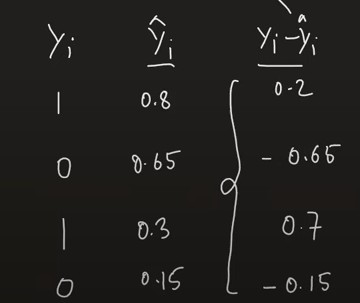 yᵢ ŷᵢ yᵢ-ŷᵢ
1 0.8 0.2
0 0.65 - 0.65
1 0.3 0.7
0 0.15 - 0.15